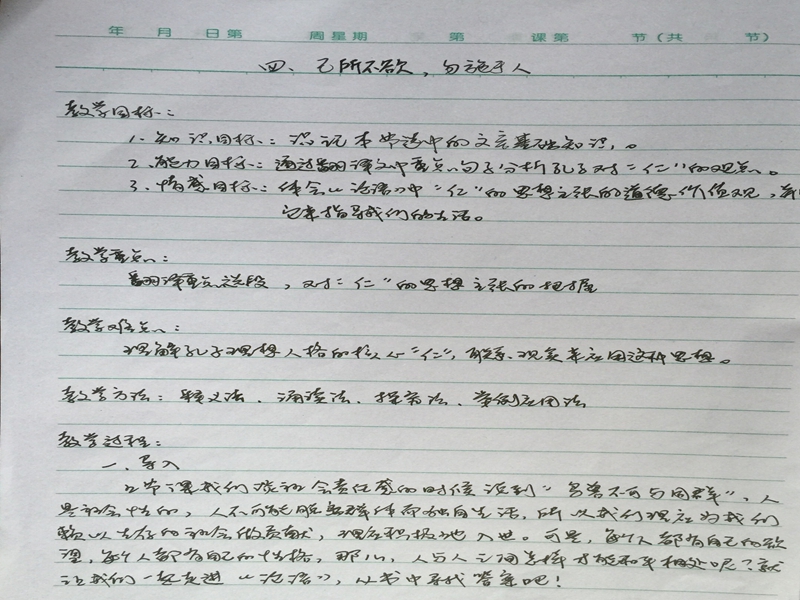 年 月 日第 周星期 第 课第 节(共 节)
四、己所不欲，勿施于人
教学目标：
1、知识目标：识记本书选中的文言基础知识。
2、能力目标：通过翻译文中重点句子分析孔子对“仁”的观点。
3、情感目标：体会《论语》中“仁”的思想主张的道德价值观，并以
它来指导我们的生活。
教学重点：
翻译重点选段，对“仁”的思想主张的把握
教学难点：
理解孔子理想人格的核心“仁”，联系现实来应用这种思想。
教学方法：释义法、诵读法、探究法、案例应用法
教学过程：
一、导入
上节课我们谈社会责任感的时候谈到“鸟兽不可与同群”，人
是社会性的，人不可能脱离群体而独自生活，所以我们理应为我们
赖以生存的社会做贡献，理应积极地入世。可是，每个人都有自己的欲
望，每个人都有自己的性格，那么，人与人之间怎样才能和平相处呢？就
让我们一起走进《论语》，从书中寻找答案吧！